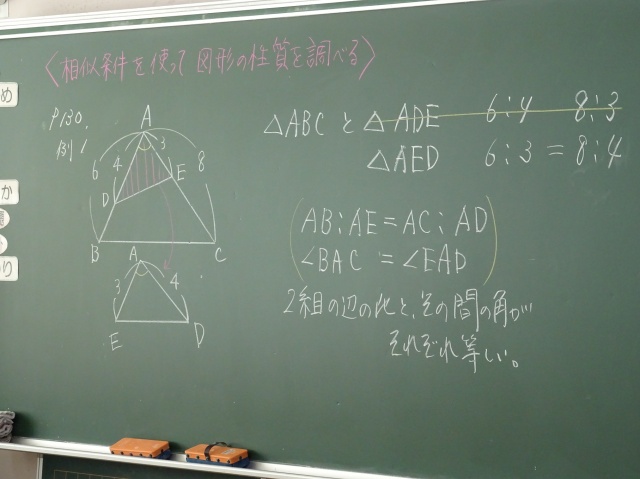 〈相似条件を使って図形の性質を調べる〉
P130.
例1
A
6 4 3 8
D E
B C
A
3 4
E D
△ABCと△ADE 6:4 8:3
△AED 6:3=8:4
AB:AE=AC:AD
∠BAC=∠EAD
2組の辺の比と、その間の角が
それぞれ等しい。
め
か
り